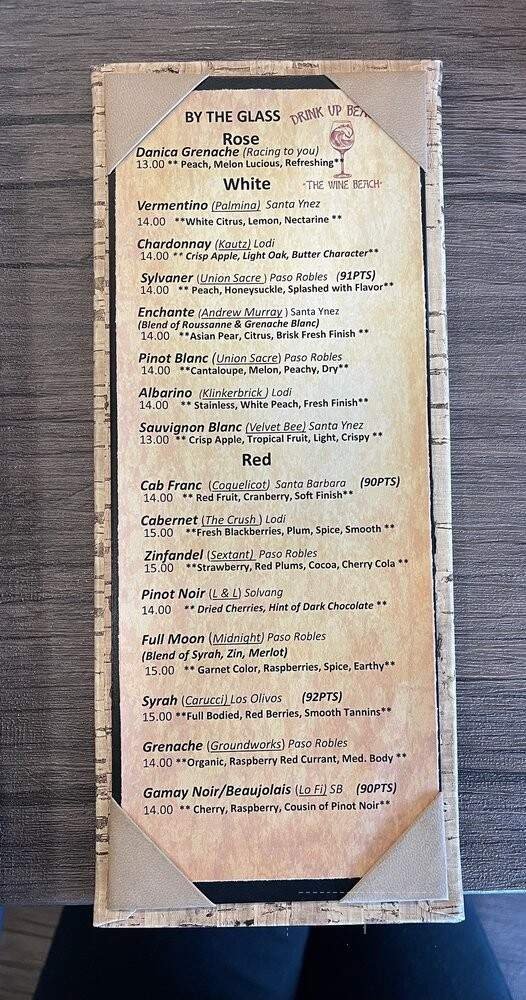 BY THE GLASS
DRINK UP
Rose
Danica Grenache (Racing to you)
13.00 ** Peach, Melon Lucious, Refreshing**
-THE WINE BEACH-
White
Vermentino (Palmina) Santa Ynez
14.00 **White Citrus, Lemon, Nectarine **
Chardonnay (Kautz) Lodi
14.00 ** Crisp Apple, Light Oak, Butter Character**
Sylvaner (Union Sacre ) Paso Robles (91PTS)
14.00 ** Peach, Honeysuckle, Splashed with Flavor**
Enchante (Andrew Murray ) Santa Ynez
(Blend of Roussanne & Grenache Blanc)
14.00 **Asian Pear, Citrus, Brisk Fresh Finish **
Pinot Blanc (Union Sacre) Paso Robles
14.00 **Cantaloupe, Melon, Peachy, Dry**
Albarino (Klinkerbrick ) Lodi
14.00 ** Stainless, White Peach, Fresh Finish**
Sauvignon Blanc (Velvet Bee) Santa Ynez
13.00 ** Crisp Apple, Tropical Fruit, Light, Crispy **
Red
Cab Franc (Coquelicot) Santa Barbara (90PTS)
14.00 ** Red Fruit, Cranberry, Soft Finish**
Cabernet (The Crush ) Lodi
15.00 **Fresh Blackberries, Plum, Spice, Smooth **
Zinfandel (Sextant) Paso Robles
15.00 **Strawberry, Red Plums, Cocoa, Cherry Cola **
Pinot Noir (L & L) Solvang
14.00 ** Dried Cherries, Hint of Dark Chocolate **
Full Moon (Midnight) Paso Robles
(Blend of Syrah, Zin, Merlot)
15.00 ** Garnet Color, Raspberries, Spice, Earthy**
Syrah (Carucci) Los Olivos (92PTS)
15.00 **Full Bodied, Red Berries, Smooth Tannins**
Grenache (Groundworks) Paso Robles
14.00 **Organic, Raspberry Red Currant, Med. Body **
Gamay Noir/Beaujolais (Lo Fi) SB (90PTS)
14.00 ** Cherry, Raspberry, Cousin of Pinot Noir**